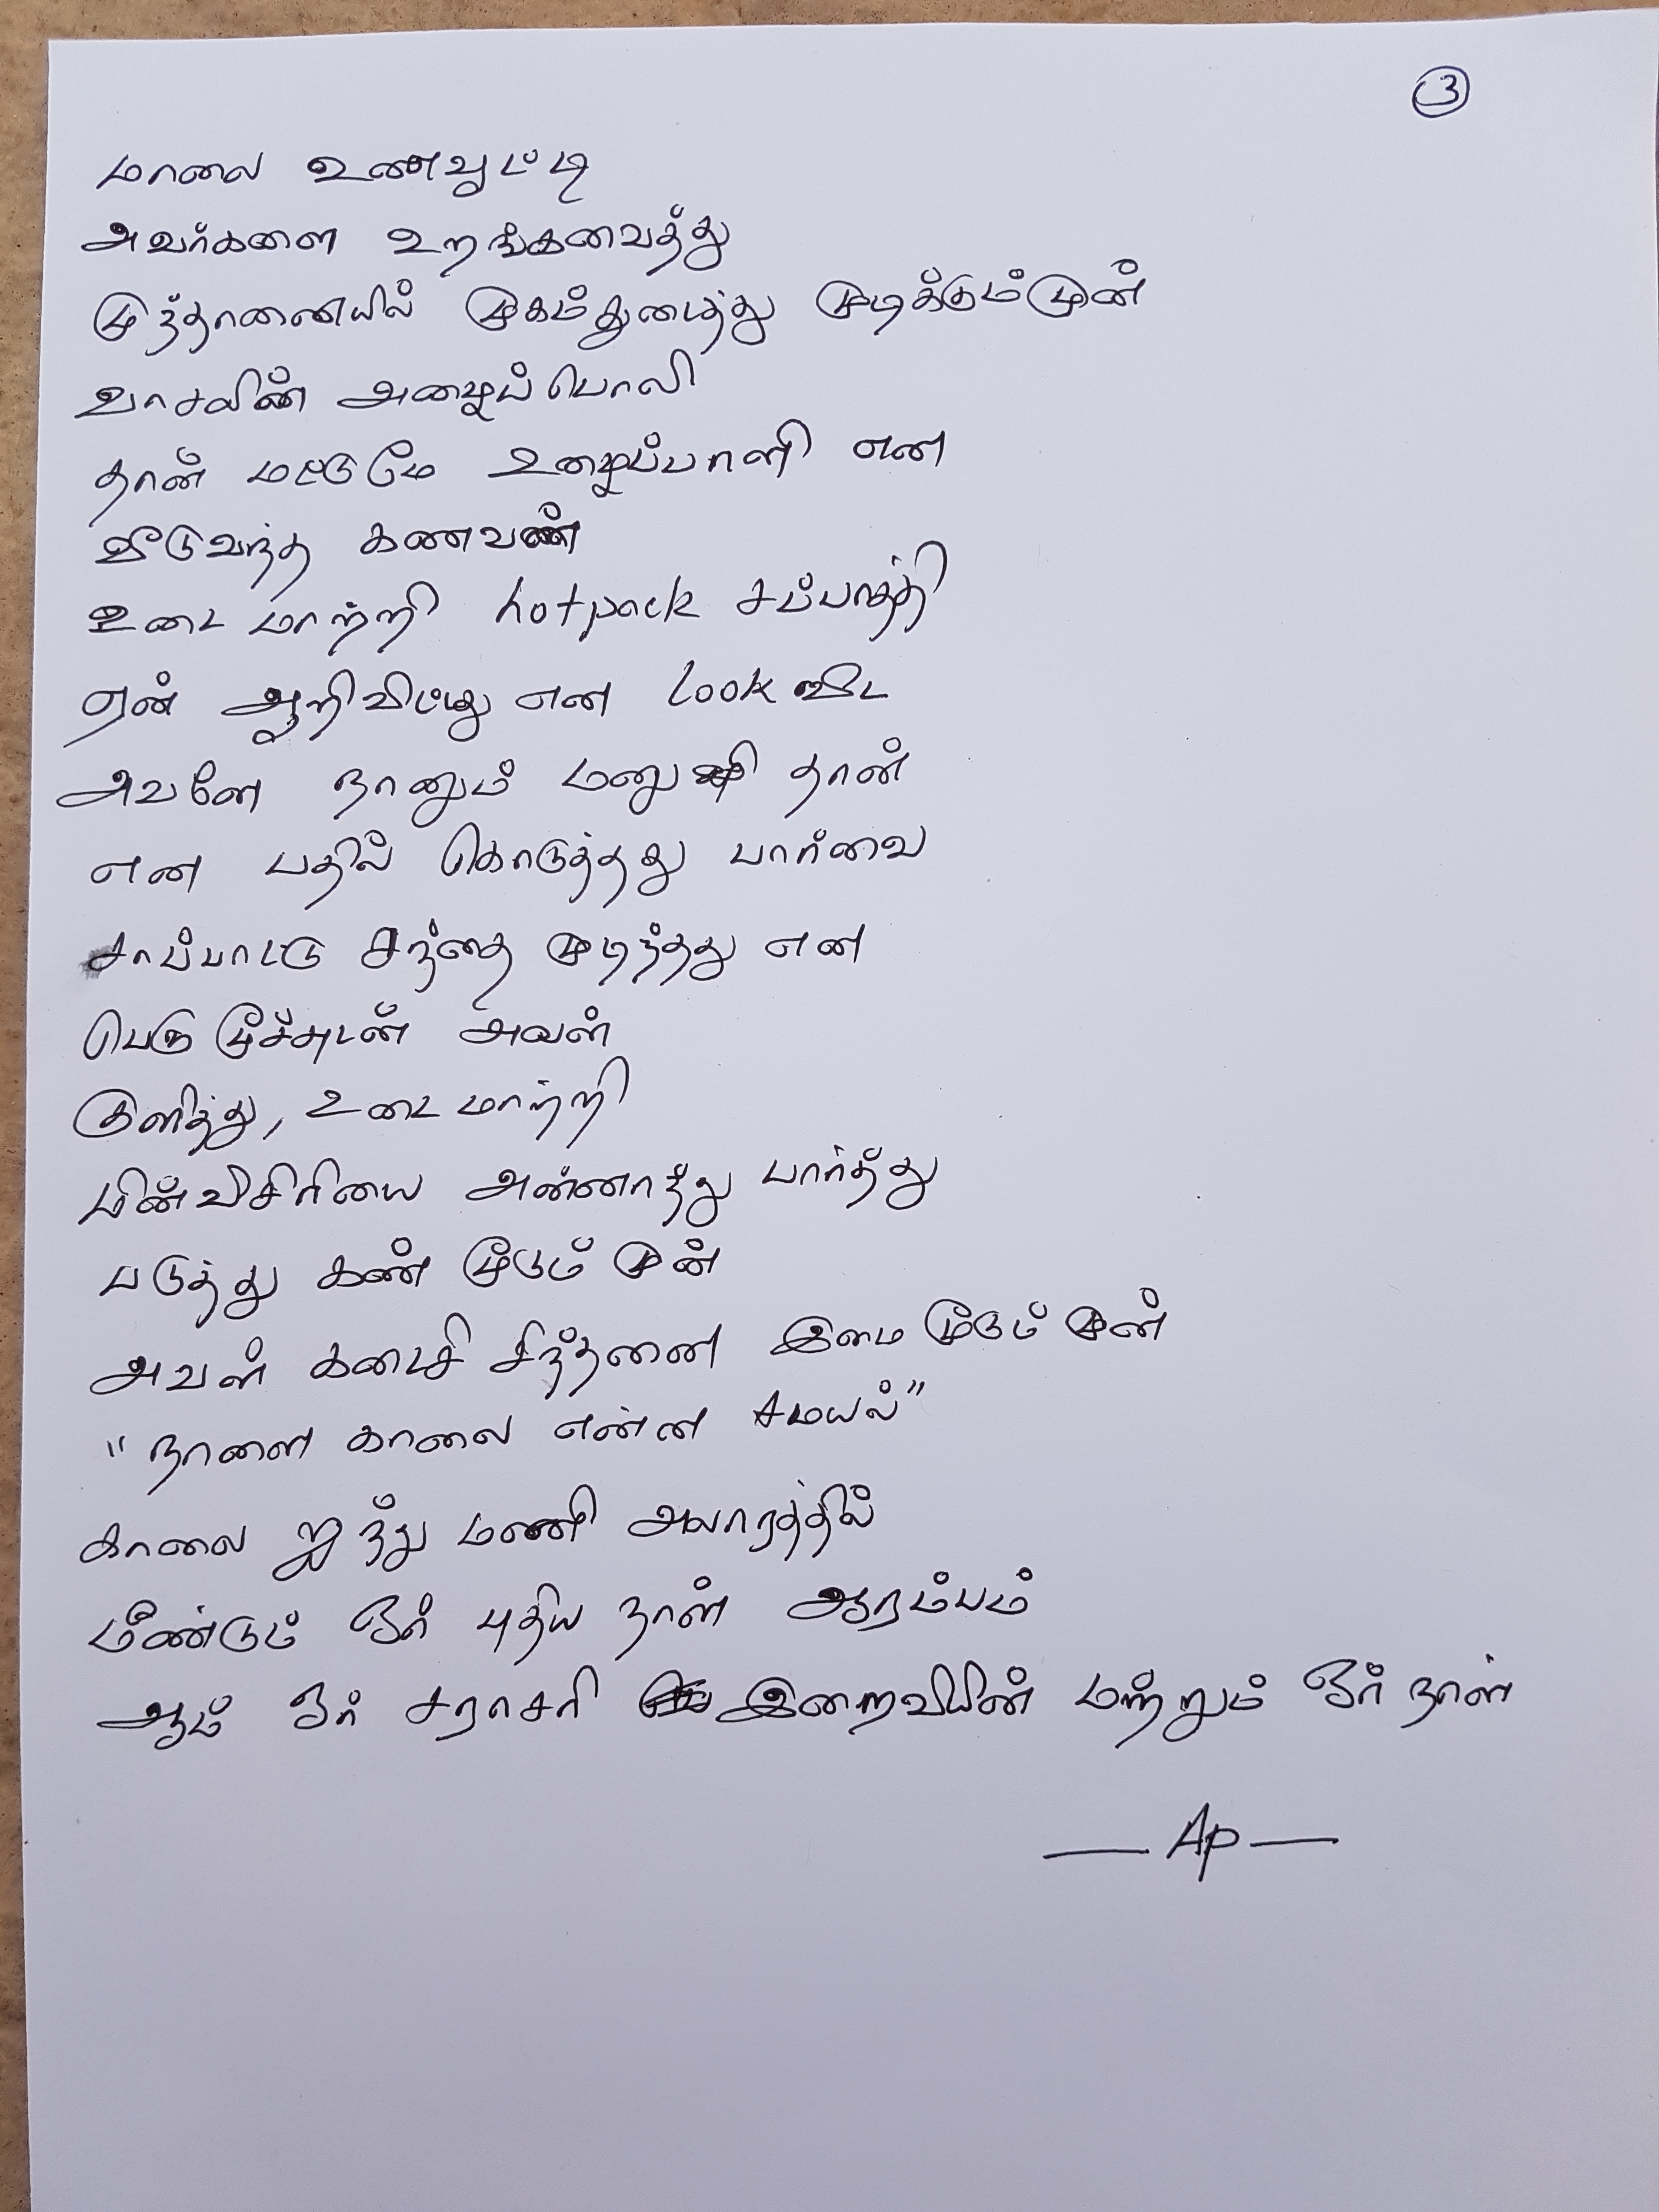 ③
மாலை உணவூட்டி
அவர்களை உறங்கவைத்து
முந்தானையில் முகம்துடைத்து முடிக்கும்முன்
வாசலின் அழைப்பொலி
தான் மட்டுமே உழைப்பாளி என
வீடுவந்த கணவன்
உடை மாற்றி hotpack சப்பாத்தி
ஏன் ஆறிவிட்டது என look விட
அவளே நானும் மனுஷி தான்
என பதில் கொடுத்தது பார்வை
சாப்பாட்டு சந்தை முடிந்தது என
பெரு மூச்சுடன் அவள்
குளித்து, உடை மாற்றி
மின்விசிரியை அன்னாந்து பார்த்து
படுத்து கண் மூடும் முன்
அவள் கடைசி சிந்தனை இமை மூடும் முன்
"நாளை காலை என்ன சமயல்"
காலை ஐந்து மணி அலாரத்தில்
மீண்டும் ஓர் புதிய நாள் ஆரம்பம்
ஆம் ஓர் சராசரி இறைவியின் மற்றும் ஓர் நாள்
— AP —